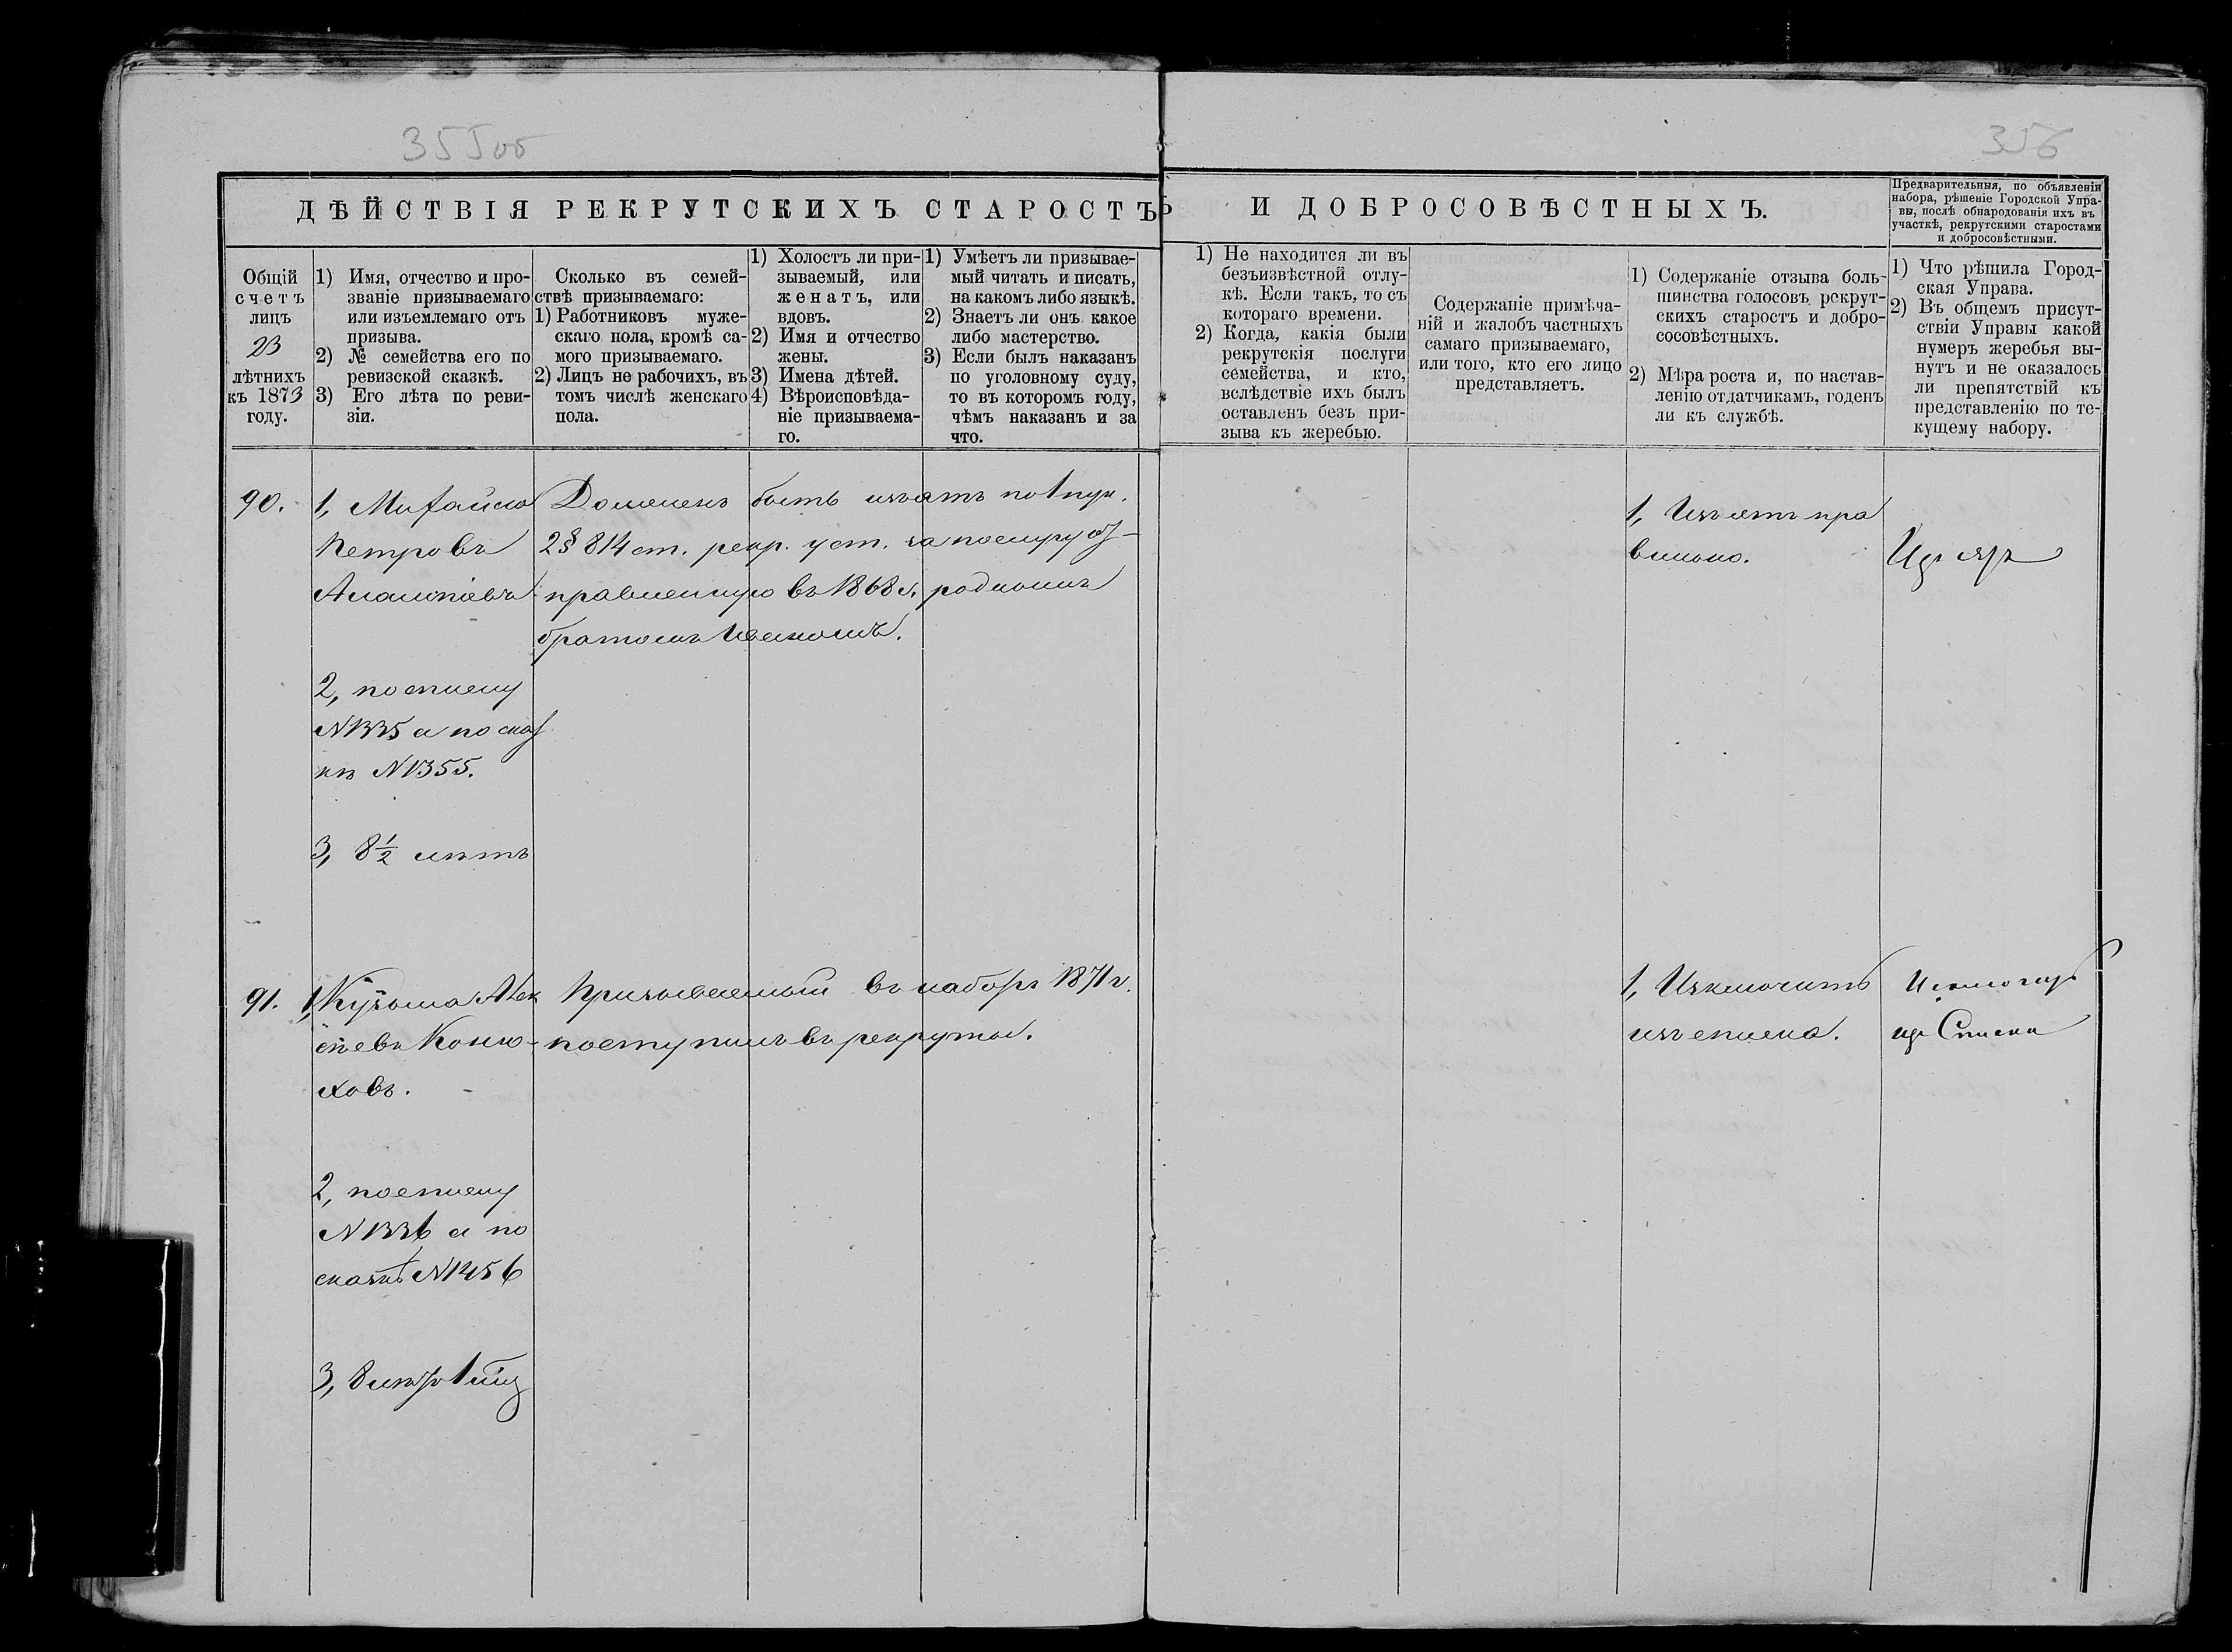 355 об
356
ДѢЙСТВІЯ РЕКРУТСКИХЪ СТАРОСТЪ
И ДОБРОСОВѢСТНЫХЪ.
Предварительныя, по объявленіи
набора, рѣшеніе Городской Упра-
вы, послѣ обнародованія ихъ въ
участкѣ, рекрутскими старостами
и добросовѣстными.
Общій
счетъ
лицъ
23
лѣтнихъ
къ 1873
году.
1) Имя, отчество и про-
званіе призываемаго
или изъемлемаго отъ
призыва.
2) № семейства его по
ревизской сказкѣ.
3) Его лѣта по реви-
зіи.
Сколько въ семей-
ствѣ призываемаго:
1) Работниковъ муже-
скаго пола, кромѣ са-
мого призываемаго.
2) Лицъ не рабочихъ, въ
томъ числѣ женскаго
пола.
1) Холостъ ли при-
зываемый, или
женатъ, или
вдовъ.
2) Имя и отчество
жены.
3) Имена дѣтей.
4) Вѣроисповѣда-
ніе призываема-
го.
1) Умѣетъ ли призывае-
мый читать и писать,
на какомъ либо языкѣ.
2) Знаетъ ли онъ какое
либо мастерство.
3) Если былъ наказанъ
по уголовному суду,
то въ которомъ году,
чѣмъ наказанъ и за
что.
1) Не находится ли въ
безъизвѣстной отлу-
кѣ. Если такъ, то съ
котораго времени.
2) Когда, какія были
рекрутскія послуги
семейства, и кто,
вслѣдствіе ихъ былъ
оставленъ безъ при-
зыва къ жеребью.
Содержаніе примѣча-
ній и жалобъ частныхъ
самаго призываемаго,
или того, кто его лицо
представляетъ.
1) Содержаніе отзыва боль-
шинства голосовъ рекрут-
скихъ старостъ и добро-
сосовѣстныхъ.
2) Мѣра роста и, по настав-
ленію отдатчикамъ, годенъ
ли къ службѣ.
1) Что рѣшила Город-
ская Управа.
2) Въ общемъ присут-
ствіи Управы какой
нумеръ жеребья вы-
нутъ и не оказалось
ли препятствій къ
представленію по те-
кущему набору.
90.
1, Михайло
Петровъ
2, по списку
N 1335 а по сказ
кѣ N 1355.
3, 8½ лѣтъ
Долженъ быть изъятъ по 1 пун.
2 § 814 ст. рекр. уст. за послугу от-
правленную въ 1868 г. роднымъ
братомъ Иваномъ.
1, Изъятъ пра
вильно.
91.
1, Кузьма Алек
сѣевъ Коню-
ховъ.
2, по списку
N 1336 а по
сказкѣ N 1456
Призываемый въ наборъ 1871 г.
поступилъ въ рекруты.
1, Изключить
изъ списка.
Исключ
изъ Списка